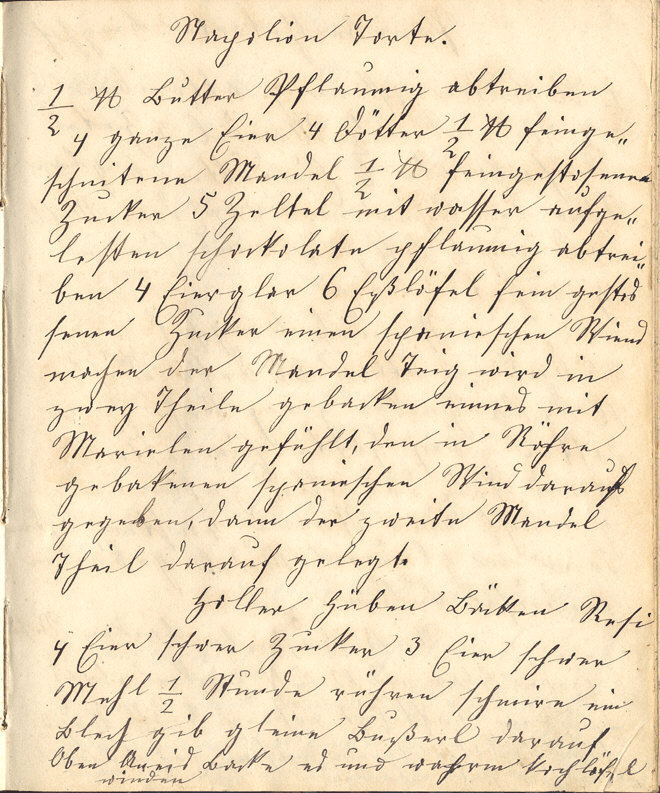 Napolion Torte.
1/2 ℔ Butter Pflaumig abtreiben
4 ganze Eier 4 Dötter 1/2 ℔ feinge„
schnitene Mandel 1/2 ℔ feingestosenen
Zucker 5 Zeltel mit wasser aufge„
lesten schockolate pflaumig abtrei„
ben 4 Eierglar 6 Eßlöfel fein gestos
senen Zucker einen spanieschen Wiend
machen der Mandel Teig wird in
zwey Theile gebacken einnes mit
Marielen gefühlt, den in Röhre
gebakenen spanieschen Wind darauf
gegeben, dann der zweite Mandel
Theil darauf gelegt.
Holler Hüben Bäcken Resi
4 Eier schwer Zucker 3 Eier schwer
Mehl 1/2 Stunde rühren schmire ein
Blech gib gleine Bußerl darauf
Oben backe es und wahrm kochlöfel
winden